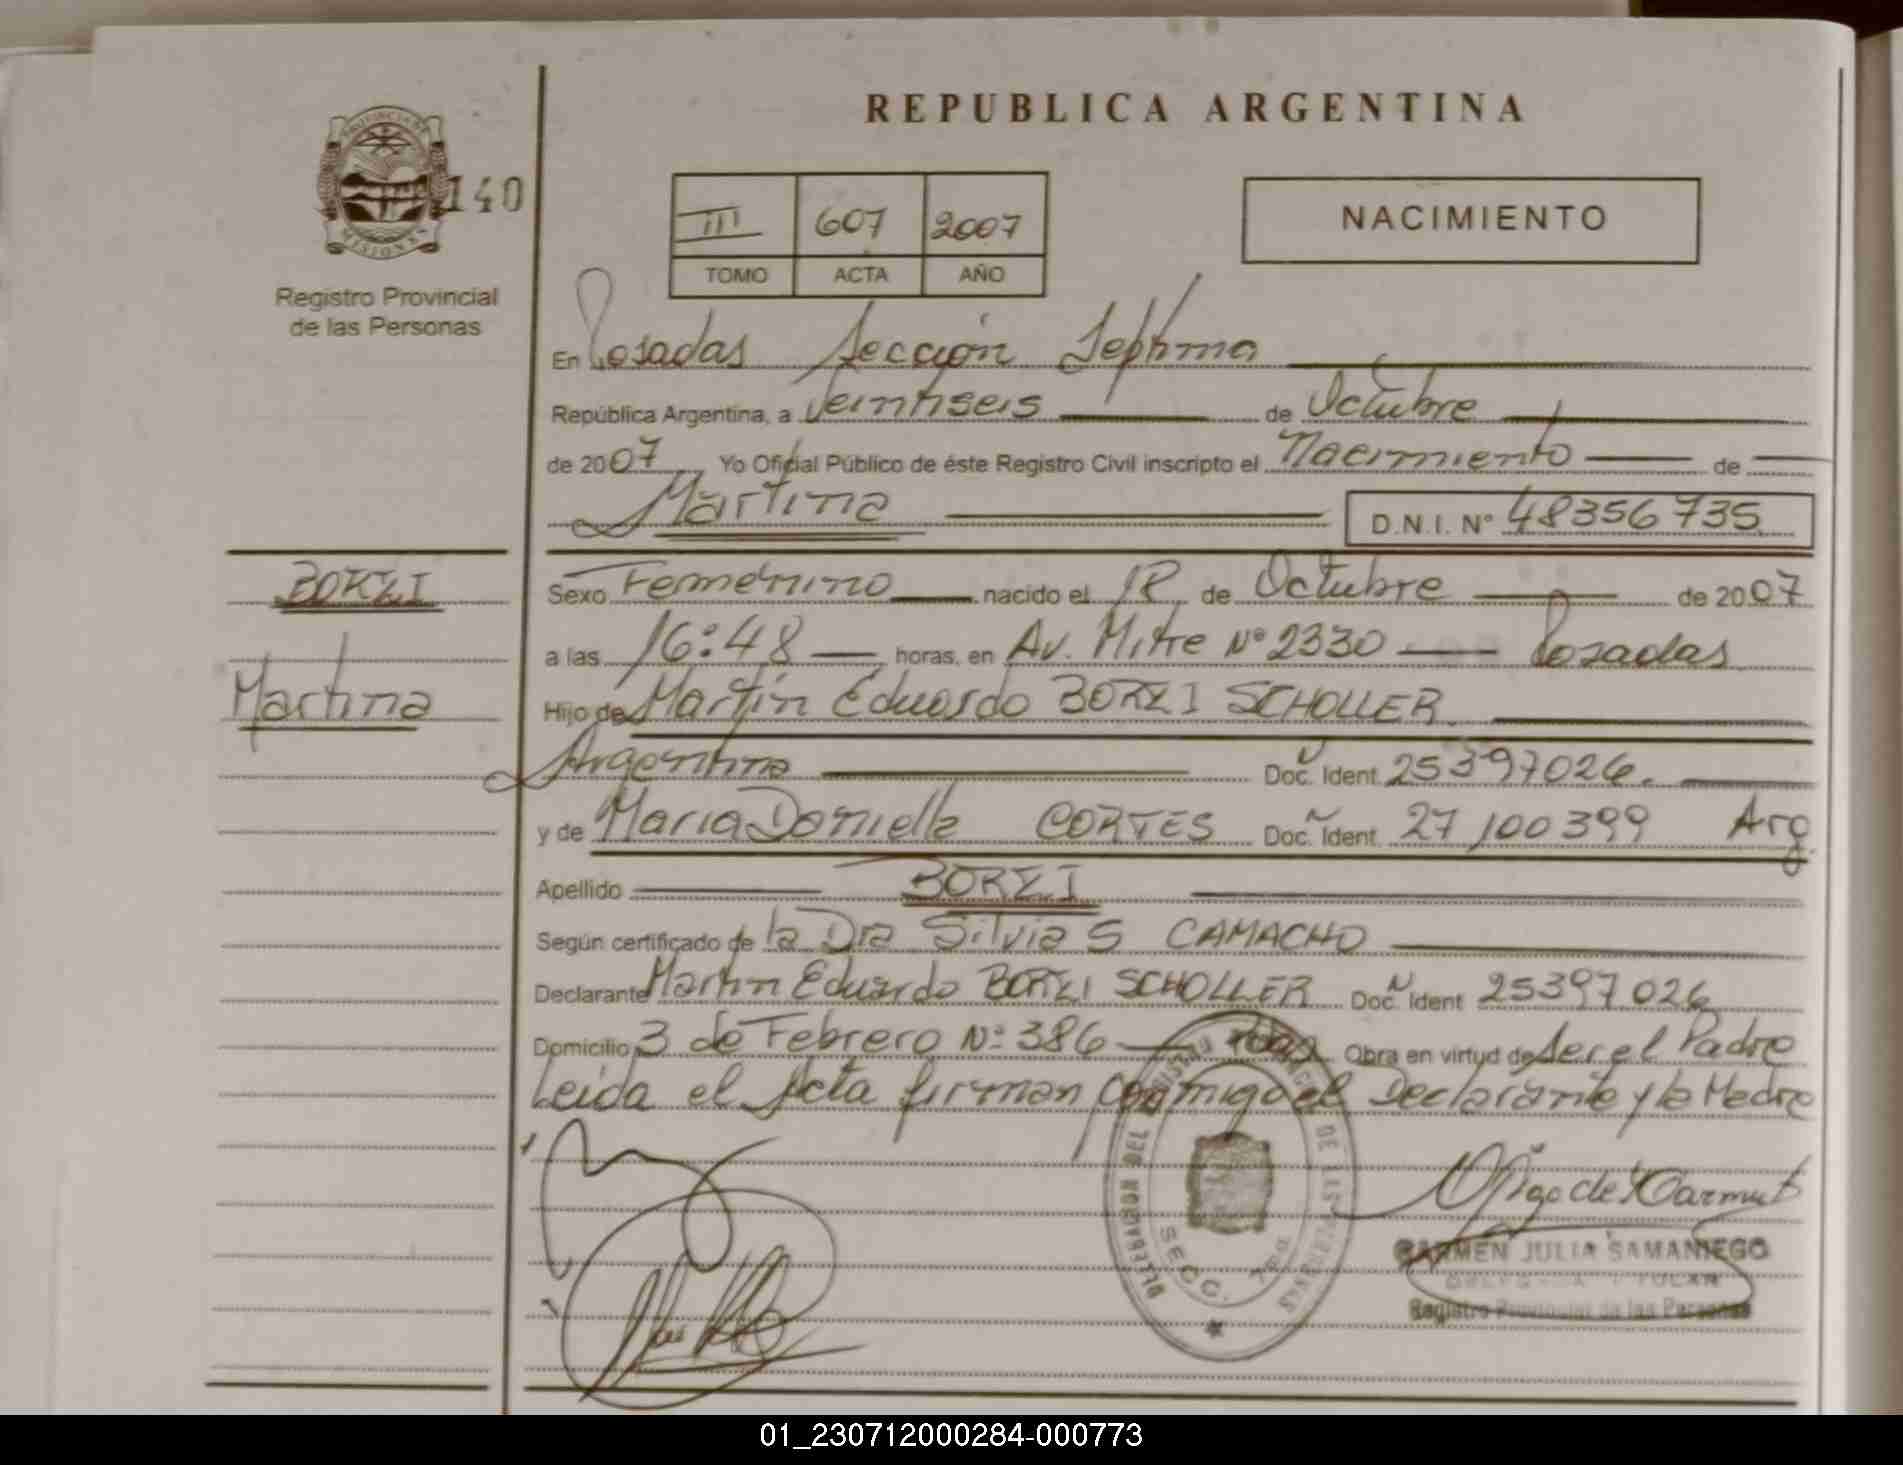 REPUBLICA ARGENTINA
PROVINCIA DE
MISIONES
140
Registro Provincial
de las Personas
III 607 2007
TOMO ACTA AÑO
NACIMIENTO
En Posadas Sección Septima
República Argentina, a Veintiseis de Octubre
de 2007 Yo Oficial Público de éste Registro Civil inscripto el Nacimiento de
Martina D.N.I. N° 48356735
BORZI
Martina
Sexo Femenino nacido el 18 de Octubre de 2007
a las 16:48 horas, en Av. Mitre N° 2330 Posadas
Hijo de Martín Eduardo BORZI SCHOLLER
Argentina Doc. Ident. 25397026.
y de Maria Daniella CORTES Doc. Ident. 27100399 Arg.
Apellido BORZI
Según certificado de la Dra Silvia S CAMACHO
Declarante Martin Eduardo BORZI SCHOLLER Doc. Ident 25397026
Domicilio 3 de Febrero N° 386 Obra en virtud de ser el Padre
Leida el Acta firman conmigo el Declarante y la Madre
DELEGACION DEL REGISTRO DE LAS PERSONAS
SECC. 7ma
CARMEN JULIA SAMANIEGO
DELEGADA TITULAR
Registro Provincial de las Personas
01_230712000284-000773